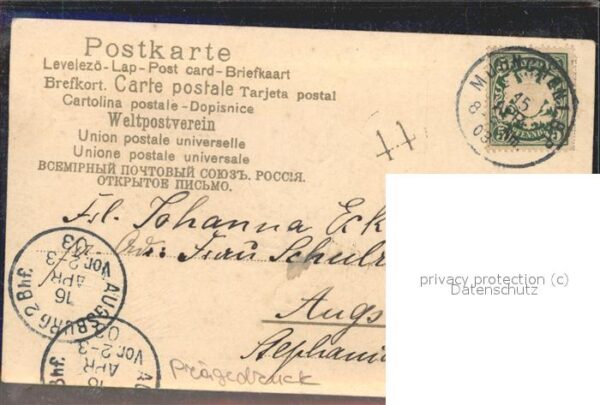 Postkarte
Levelező-Lap-Post card-Briefkaart
Brefkort. Carte postale Tarjeta postal
Cartolina postale-Dopisnice
Weltpostverein
Union postale universelle
Unione postale universale
ВСЕМІРНЫЙ ПОЧТОВЫЙ СОЮЗЪ. РОССІЯ.
ОТКРЫТОЕ ПИСЬМО.
Frl. Johanna Eck
Frau Schulr
Augs
Stephani
Prägedruck
AUGSBURG 2 Bhf.
16
APR
Vor. 2-3
03
16
APR
Vor. 2-3
03
Bhf.
15
APR
PFENNIG
privacy protection (c)
Datenschutz